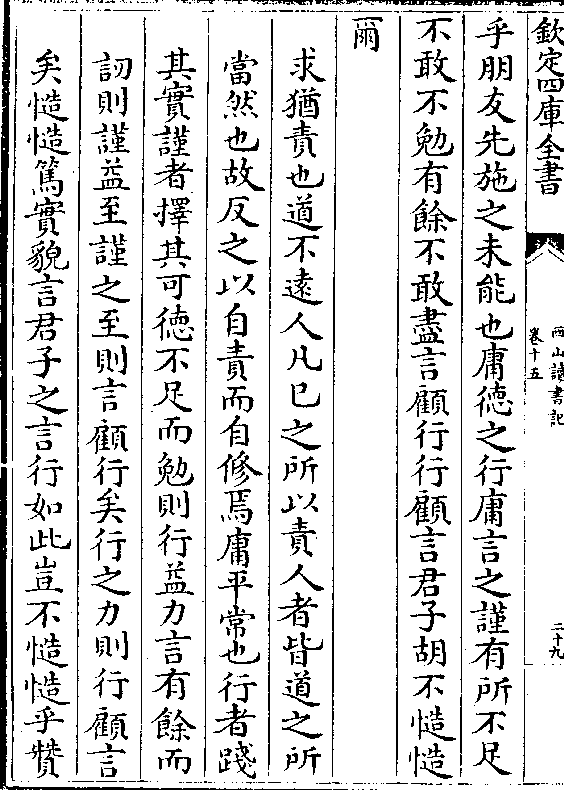 欽定四庫全書
西山讀書記
卷十五
二十九
乎朋友先施之未能也庸德之行庸言之謹有所不足
不敢不勉有餘不敢盡言顧行行顧言君子胡不慥慥
爾
求猶責也道不遠人凡已之所以責人者皆道之所
當然也故反之以自責而自修焉庸平常也行者踐
其實謹者擇其可德不足而勉則行益力言有餘而
訒則謹益至謹之至則言顧行矣行之力則行顧言
矣慥慥篤實貌言君子之言行如此豈不慥慥乎贊